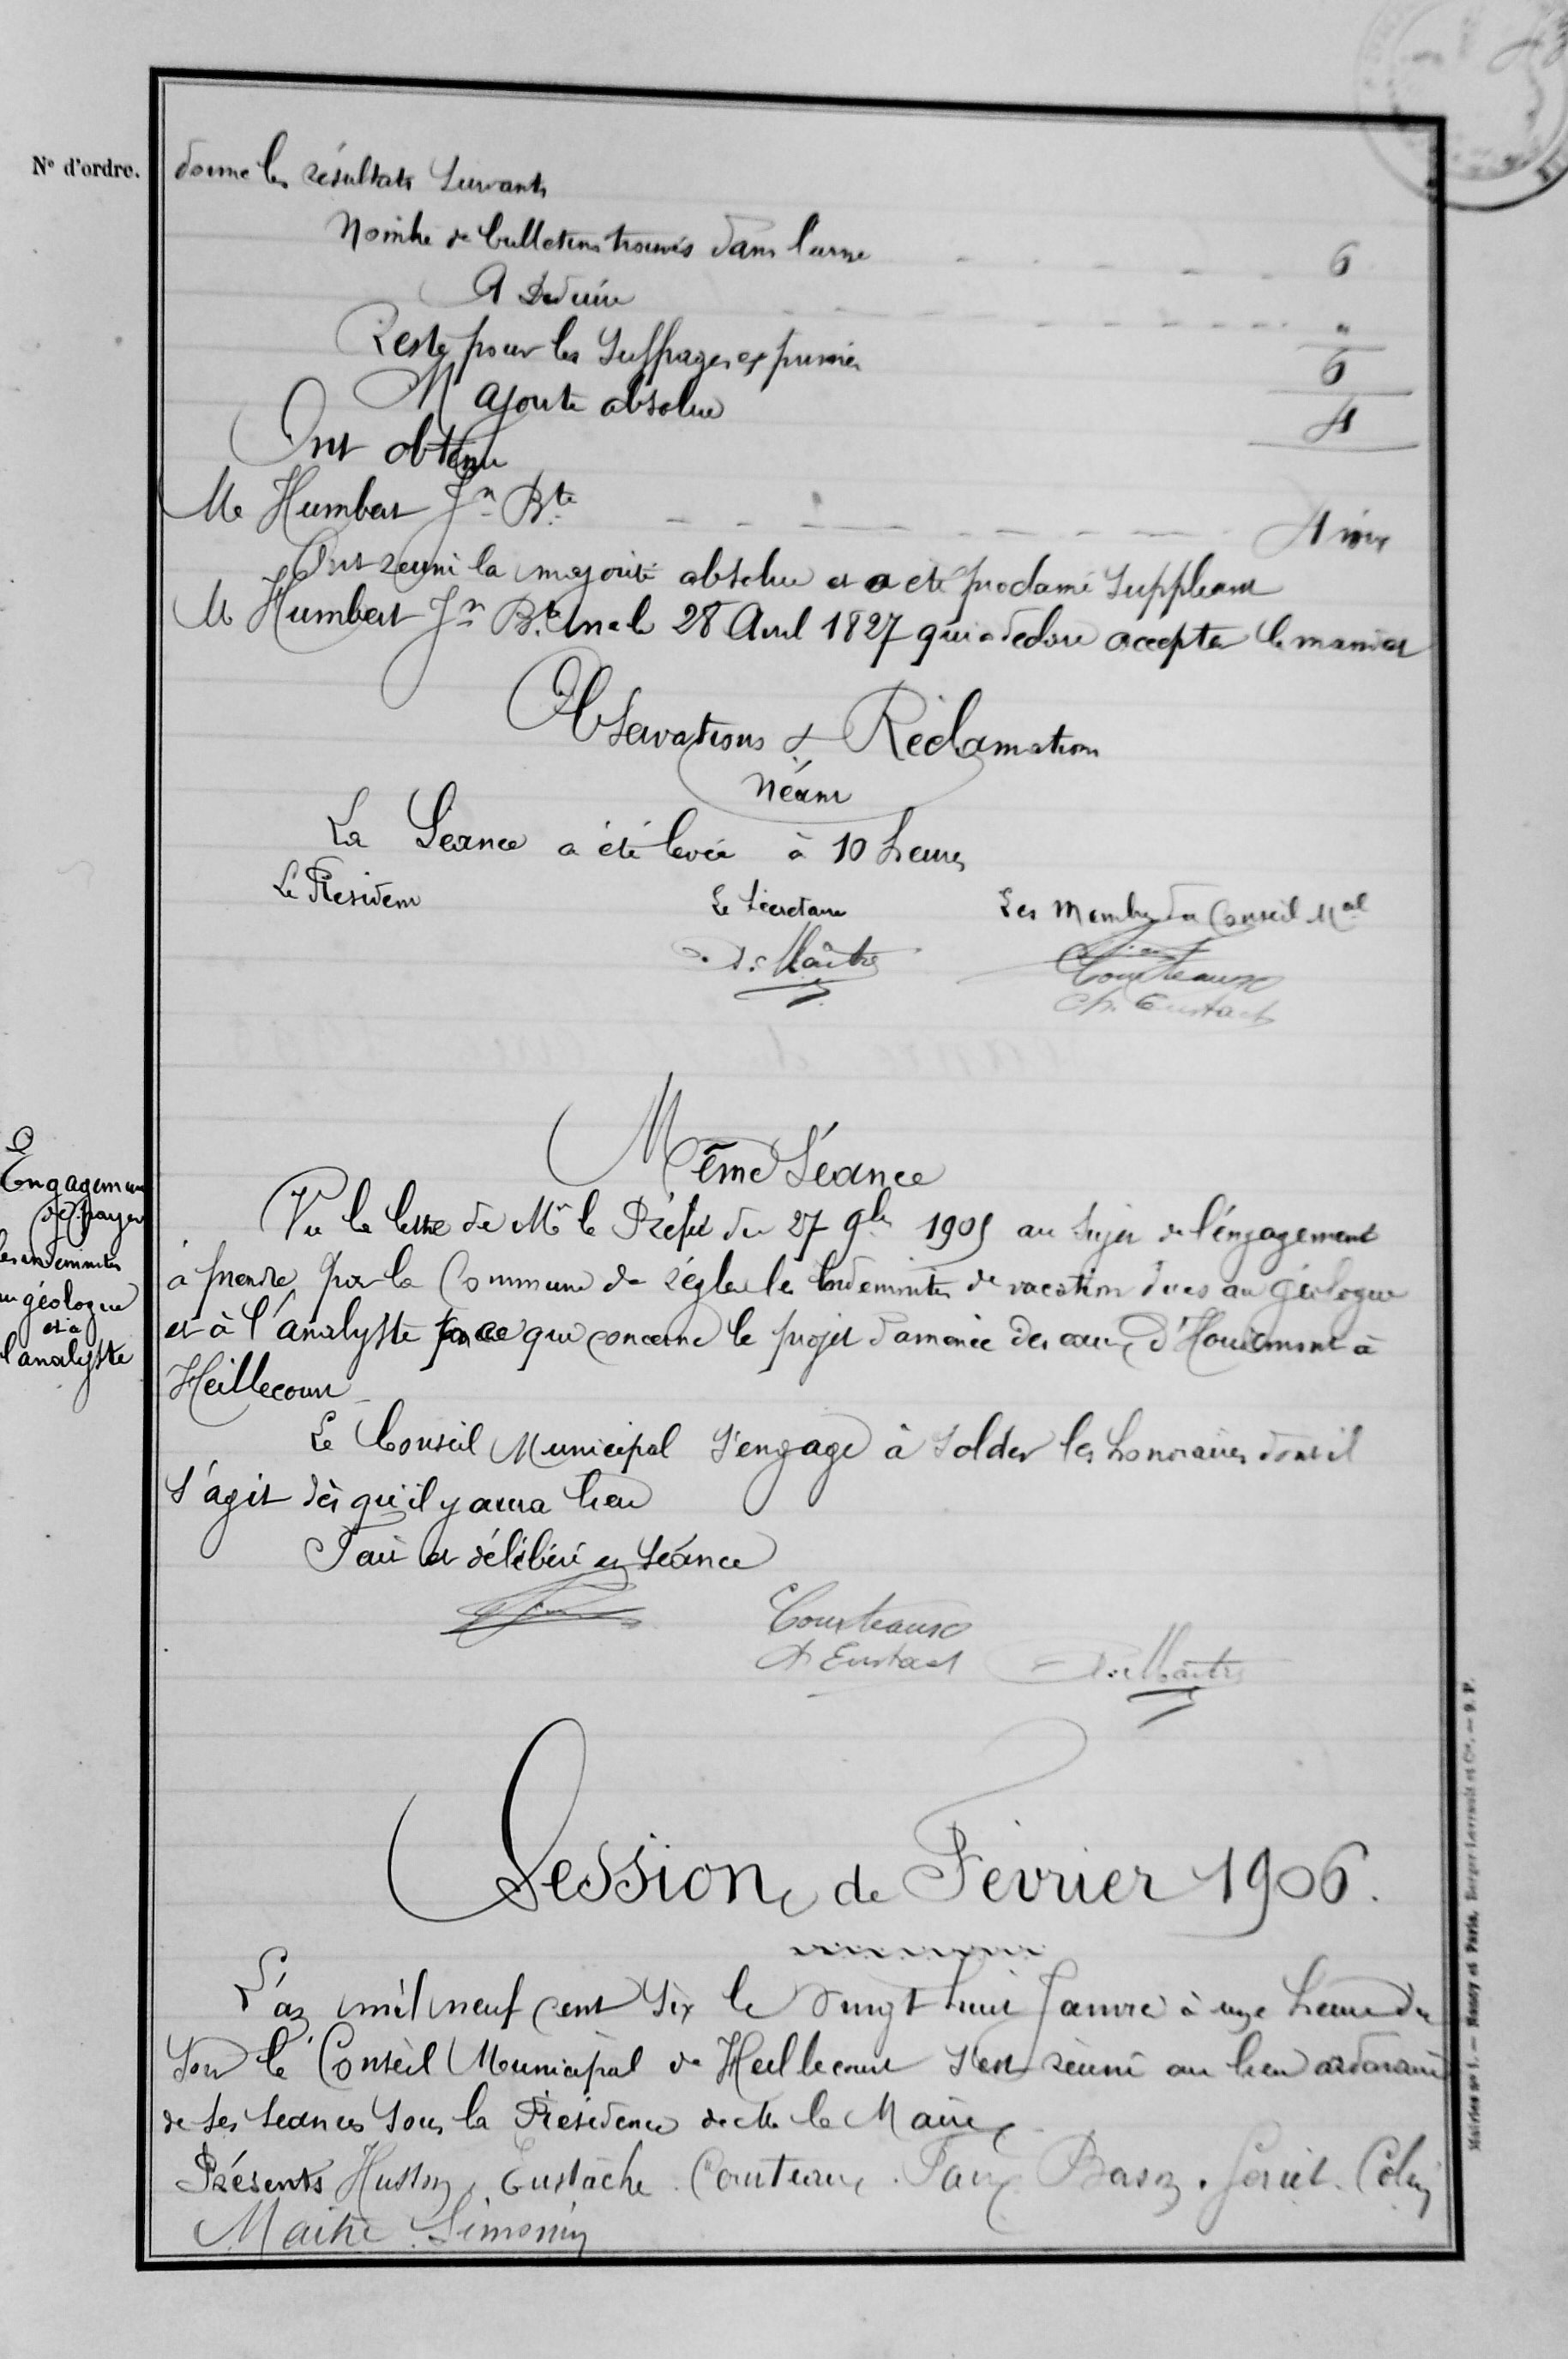 N° d'ordre.
donne les résultats suivants
Nombre de bulletins trouvés dans l'urne 6
A Déduire "
Reste pour les suffrages exprimés 6
Majorité absolue 4
Ont obtenu
Mr Humbert Jn Bte 4 voix
Ont réuni la majorité absolue et a été proclamé suppléant
Mr Humbert Jn Bte né le 28 Avril 1827 qui a déclaré accepter le mandat
Observations & Réclamations
Néant
La Séance a été levée à 10 heures
Le Président Le Secrétaire Les Membres du Conseil Mal
Maître Courteaux
Ch. Eustach
Même Séance
Engagement
de payer
les indemnités
au géologue
et à
l'analyste
Vu la lettre de Mr le Préfet du 27 9bre 1905 au sujet de l'engagement
à prendre par la Commune de régler les Indemnités de vacation dues au géologue
et à l'analyste ce qui concerne le projet d'amenée des eaux d'Houdemont à
Heillecourt
Le Conseil Municipal s'engage à solder les honoraires dont il
s'agit dès qu'il y aura lieu
Fait et délibéré en séance
Courteaux
Ch Eustach Maître
Session de Février 1906.
L'an mil neuf cent six le vingt huit Janvier à une heure du
soir le Conseil Municipal de Heillecourt s'est réuni au lieu ordinaire
de ses séances sous la Présidence de Mr le Maire
Présents Husson, Eustache. Courteaux. Baron. Colin
Maitre. Simonin
Mairies n° 1. — Nancy et Paris, Berger-Levrault et Cie. — 9. P.